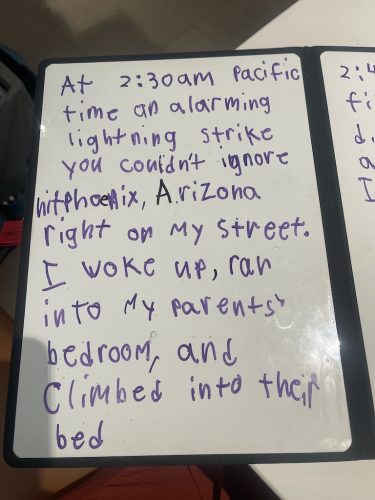 At 2:30am Pacific
time an alarming
lightning strike
you couldn't ignore
hit Phoenix, Arizona
right on my street.
I woke up, ran
into my parents'
bedroom, and
Climbed into their
bed
2:4
fi
d.
a
I